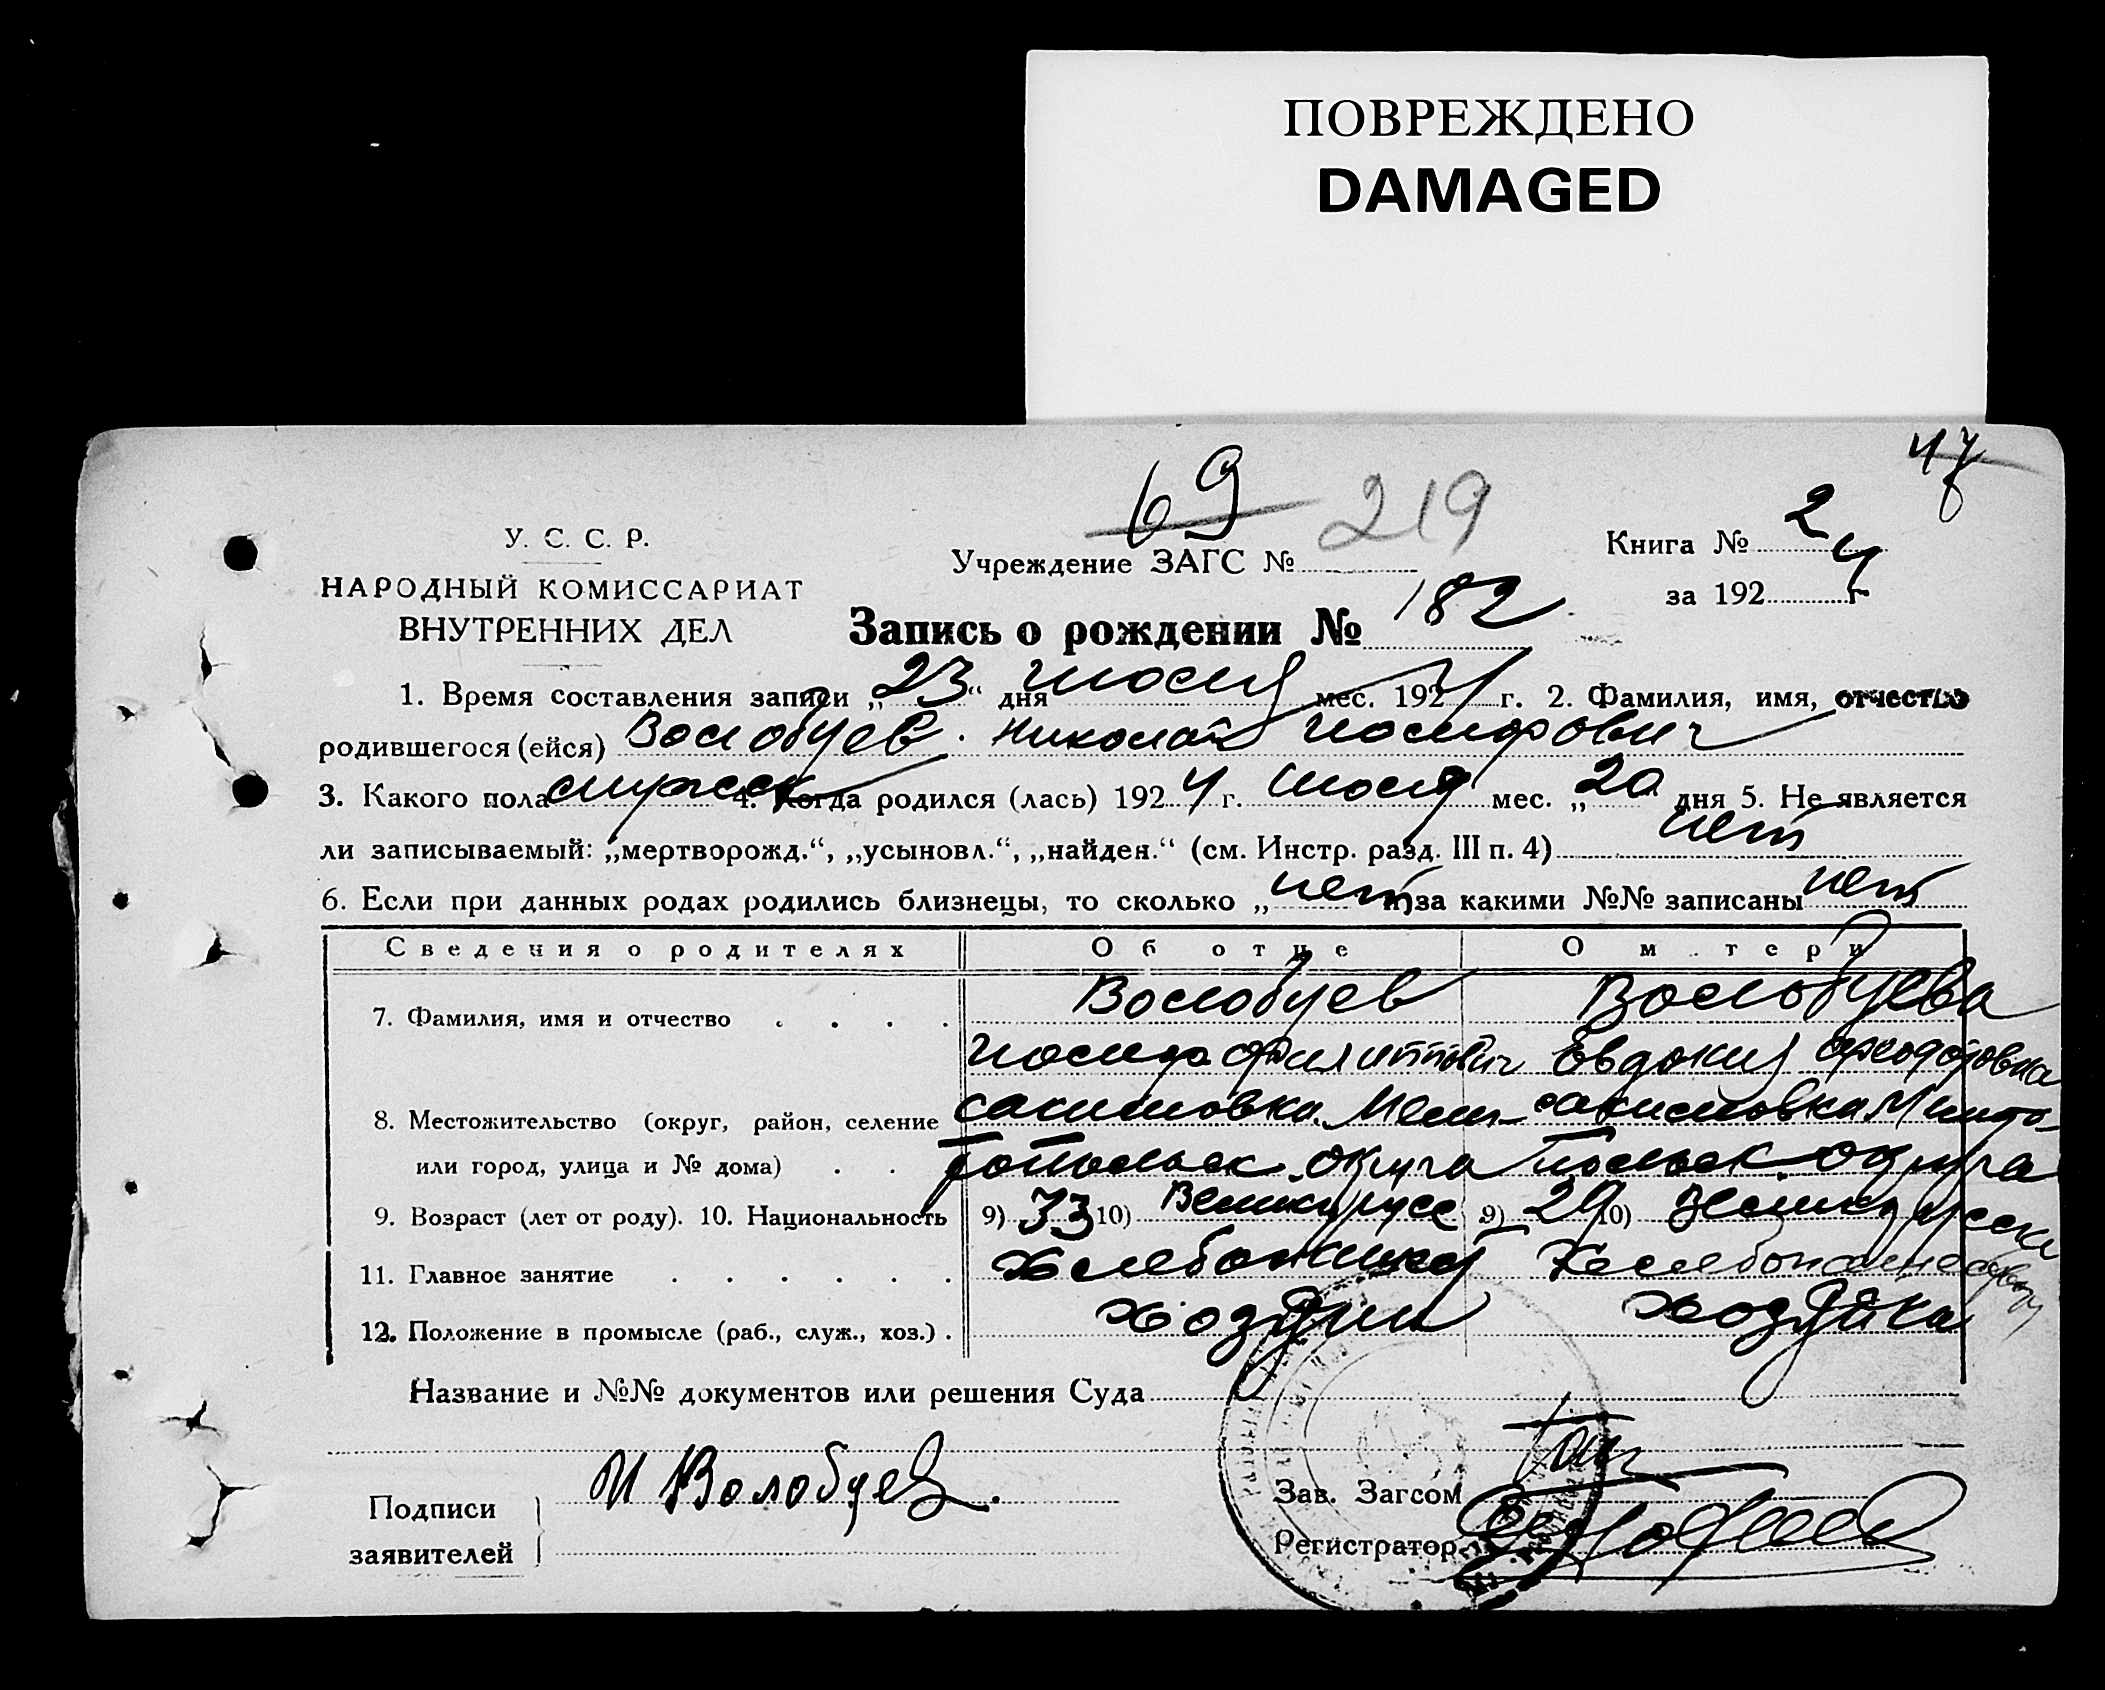 ПОВРЕЖДЕНО
DAMAGED
47
У. С. С. Р.
НАРОДНЫЙ КОМИССАРИАТ
ВНУТРЕННИХ ДЕЛ
69 219
Учреждение ЗАГС №
Книга № 2
за 1924 г
Запись о рождении № 182
1. Время составления записи „23“ дня июля мес. 1924 г. 2. Фамилия, имя, отчество
родившегося (ейся) Волобуев Николай Иосифович
3. Какого пола мужск 4. Когда родился (лась) 1924 г. июля мес. „20 дня 5. Не является
ли записываемый: „мертворожд.“, „усыновл.“, „найден.“ (см. Инстр. разд. III п. 4) нет
6. Если при данных родах родились близнецы, то сколько „нет и за какими №№ записаны нет
Сведения о родителях Об отце О м тери
7. Фамилия, имя и отчество Волобуев Волобуева
Иосиф Филиппович Евдокия Феодоровна
8. Местожительство (округ, район, селение Мели- Мелито-
или город, улица и № дома) топольск округа польск. округа
9. Возраст (лет от роду). 10. Национальность 9) 33 10) Великорусс 9) 29 10) Великорусск
11. Главное занятие Хлебопашец
12. Положение в промысле (раб., служ., хоз.) хозяин хозяйка
Название и №№ документов или решения Суда
Подписи
заявителей
И Волобуев.
Зав. Загсом
Регистратор